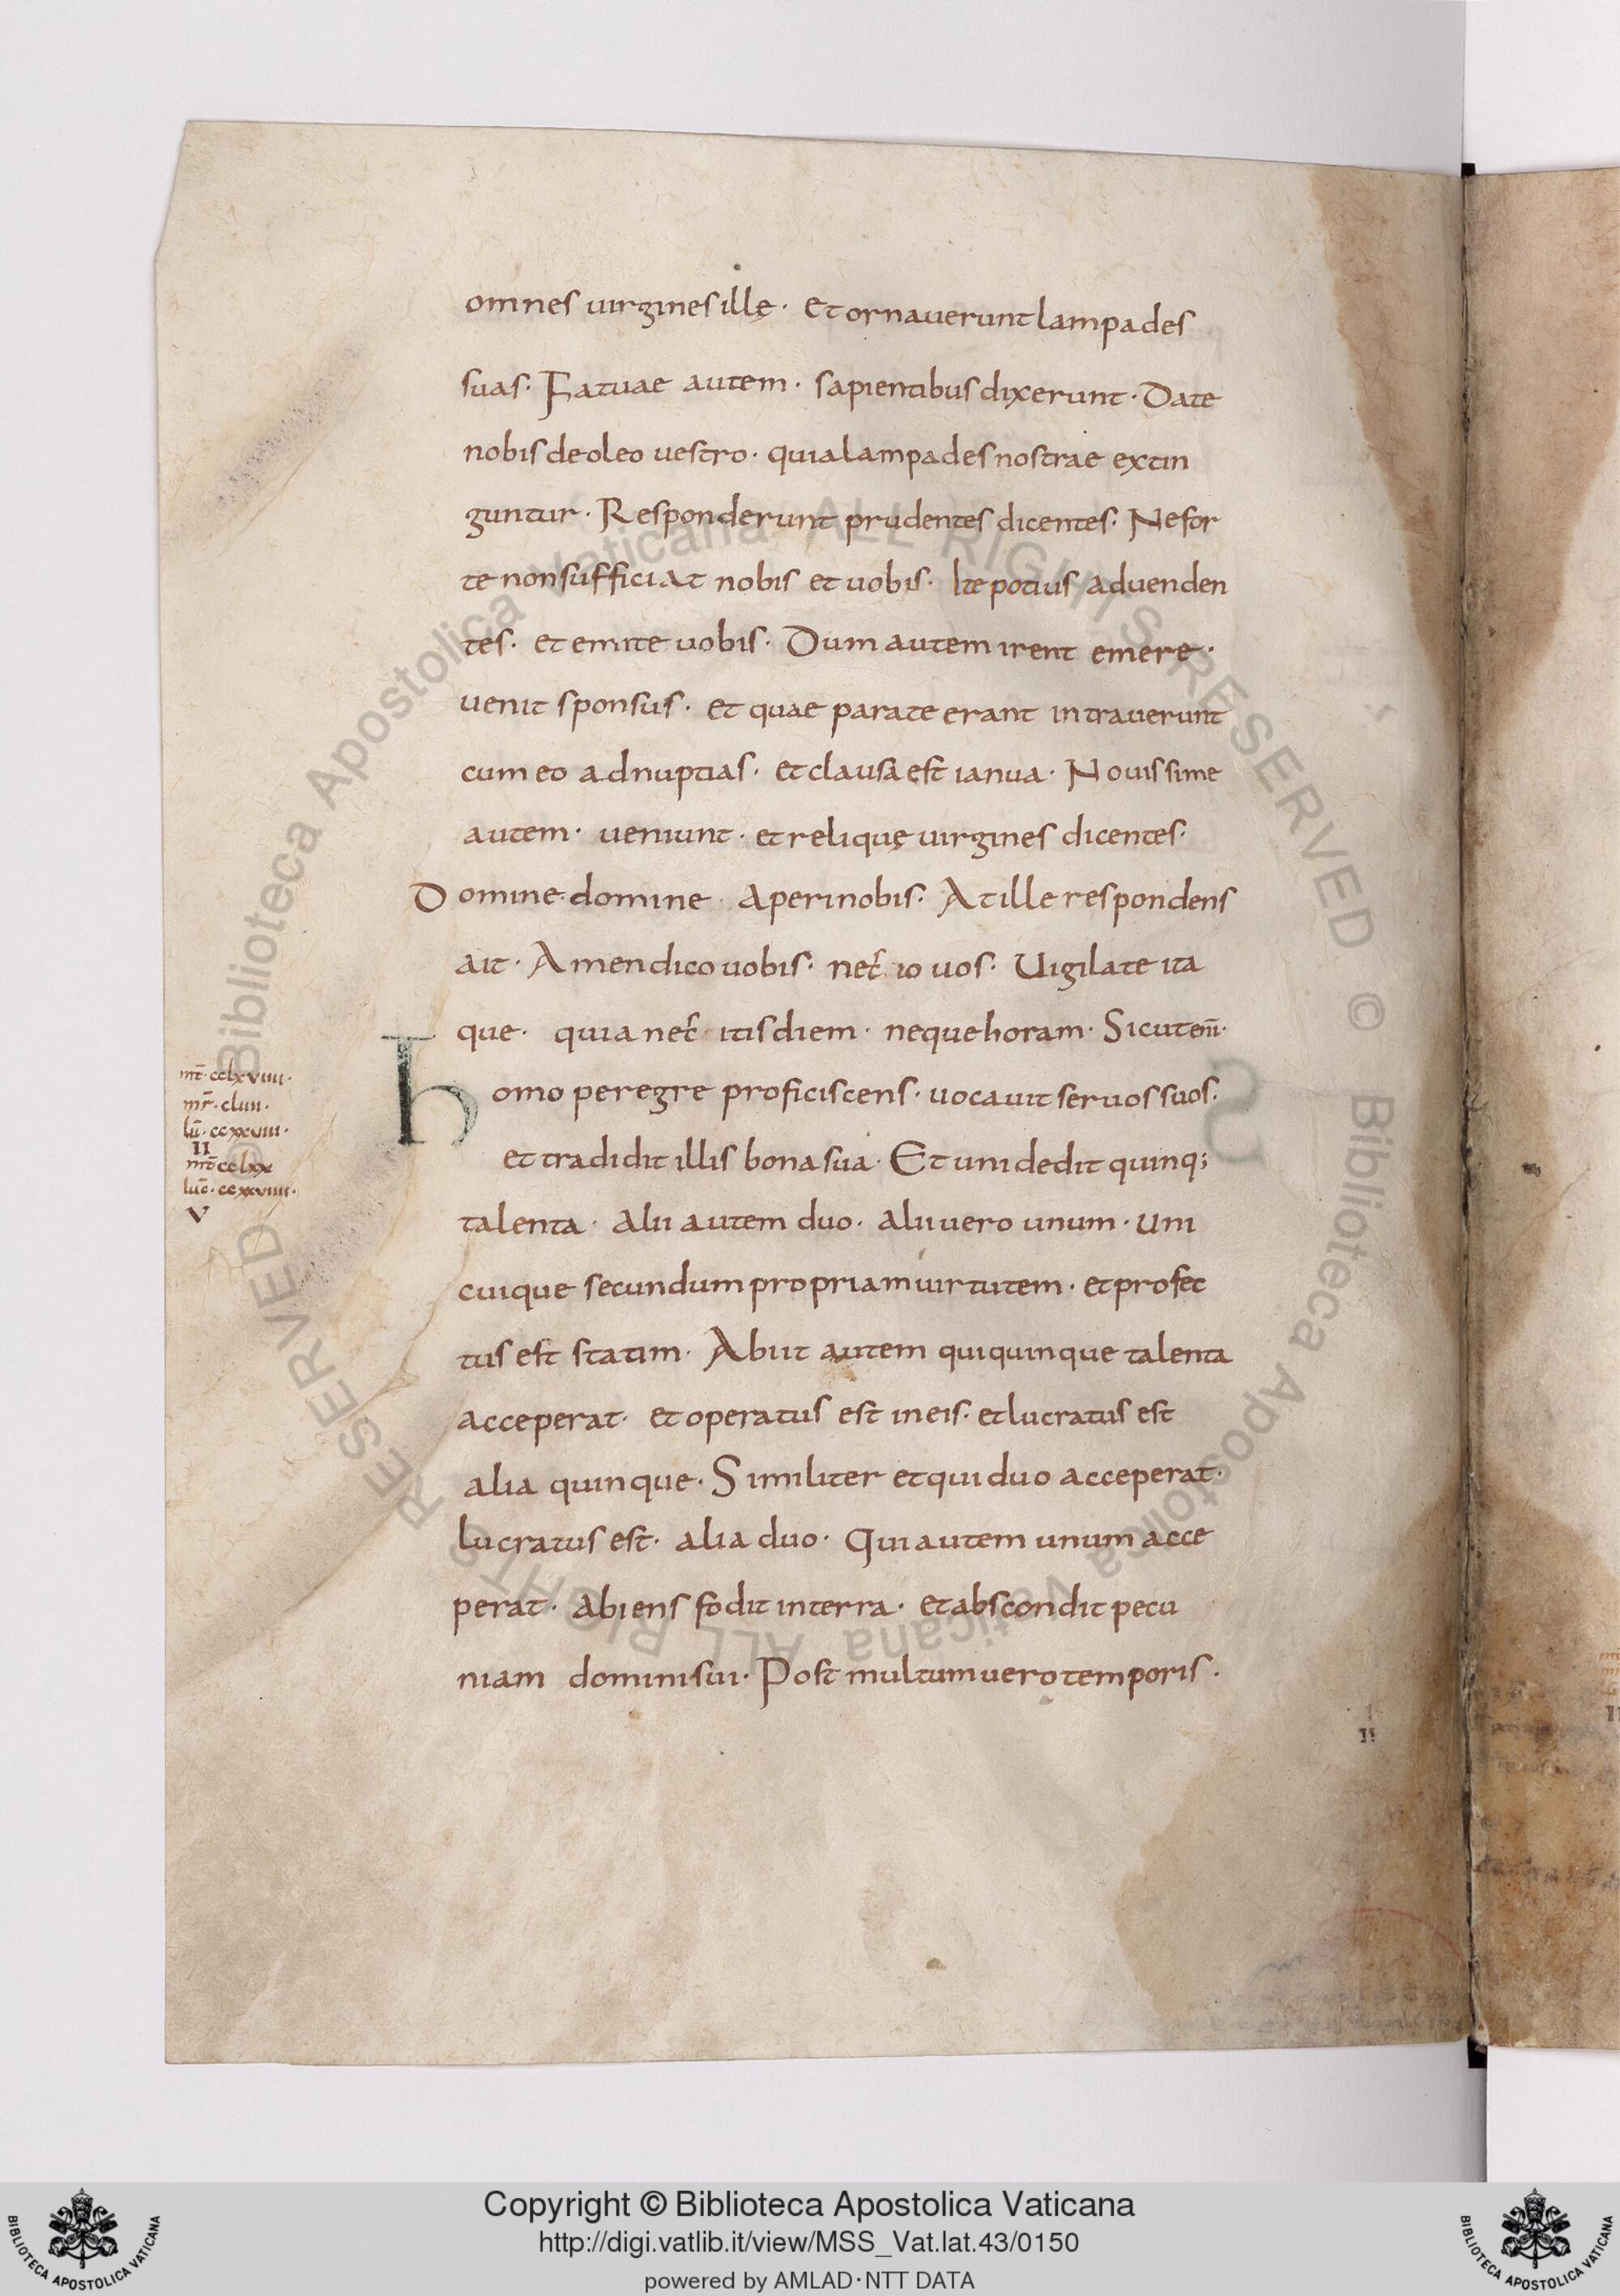 omnes uirgines illę · Et ornauerunt lampades
suas · Fatuae autem · sapientibus dixerunt · Date
nobis de oleo uestro · quia lampades nostrae extin
guntur · Responderunt prudentes dicentes · Ne for
te non sufficiat nobis et uobis · Ite potius ad uenden
tes · et emite uobis · Dum autem irent emere ·
uenit sponsus · et quae parate erant intrauerunt
cum eo ad nuptias · et clausa est ianua · Nouissime
autem · ueniunt · et reliquę uirgines dicentes ·
Domine · domine · aperi nobis · At ille respondens
ait · Amen dico uobis · nesc io uos · Uigilate ita
que · quia nesc itis diem · neque horam · Sicut eni̅ ·
homo peregre proficiscens · uocauit seruos suos ·
et tradidit illis bona sua · Et uni dedit quinq;
talenta · alii autem duo · alii uero unum · uni
cuique secundum propriam uirtutem · et profec
tus est statim · Abiit autem qui quinque talenta
acceperat · et operatus est in eis · et lucratus est
alia quinque · Similiter et qui duo acceperat ·
lucratus est · alia duo · Qui autem unum acce
perat · abiens fodit in terra · et abscondit pecu
niam domini sui · Post multum uero temporis ·
mt̅ · cclxviiii ·
mr̅ · cliiii ·
lu̅ · ccxxviii ·
II
mt̅ cclxx
luc̅ · ccxxviiii ·
V
Copyright © Biblioteca Apostolica Vaticana
http://digi.vatlib.it/view/MSS_Vat.lat.43/0150
powered by AMLAD·NTT DATA
BIBLIOTECA APOSTOLICA VATICANA
BIBLIOTECA APOSTOLICA VATICANA
© Biblioteca Apostolica Vaticana ALL RIGHTS RESERVED © Biblioteca Apostolica Vaticana ALL RIGHTS RESERVED